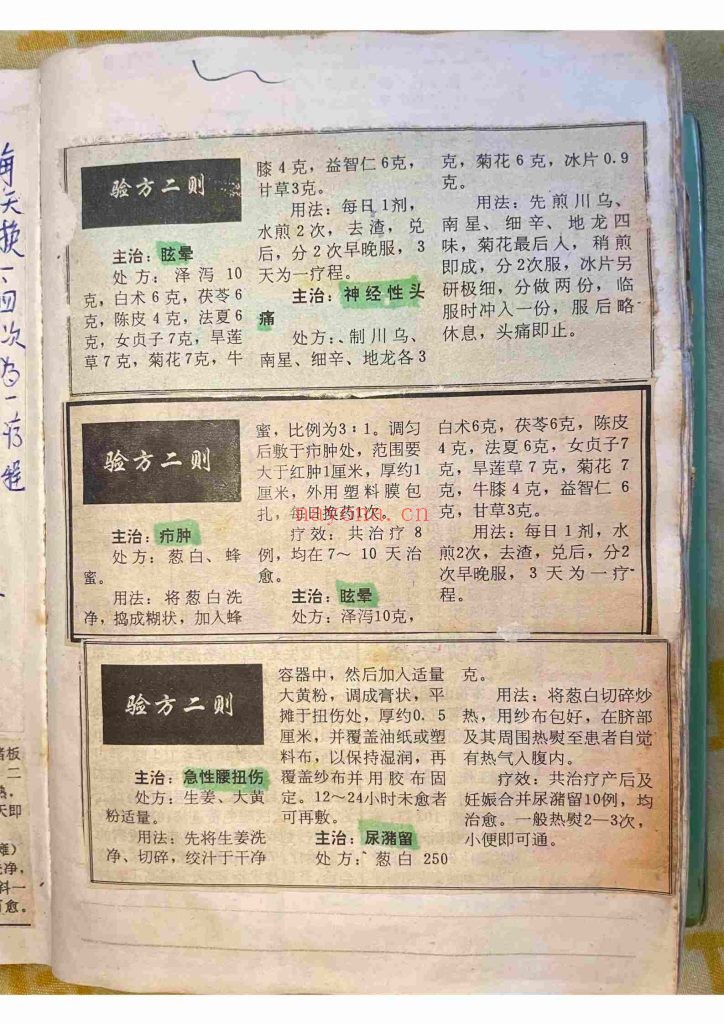 每天换一、四次为一疗程
验方二则
主治：眩晕
处方：泽泻10
克，白术6克，茯苓6
克，陈皮4克，法夏6
克，女贞子7克，旱莲
草7克，菊花7克，牛
膝4克，益智仁6克，
甘草3克。
用法：每日1剂，
水煎2次，去渣，兑
后，分2次早晚服，3
天为一疗程。
主治：神经性头
痛
处方：、制川乌、
南星、细辛、地龙各3
克，菊花6克，冰片0.9
克。
用法：先煎川乌、
南星、细辛、地龙四
味，菊花最后人，稍煎
即成，分2次服，冰片另
研极细，分做两份，临
服时冲入一份，服后略
休息，头痛即止。
验方二则
主治：疖肿
处方：葱白、蜂
蜜。
用法：将葱白洗
净，捣成糊状，加入蜂
蜜，比例为3：1。调匀
后敷于疖肿处，范围要
大于红肿1厘米，厚约1
厘米，外用塑料膜包
扎，每日换药1次。
疗效：共治疗8
例，均在7～10天治
愈。
主治：眩晕
处方：泽泻10克，
白术6克，茯苓6克，陈皮
4克，法夏6克，女贞子7
克，旱莲草7克，菊花7
克，牛膝4克，益智仁6
克，甘草3克。
用法：每日1剂，水
煎2次，去渣，兑后，分2
次早晚服，3天为一疗
程。
验方二则
主治：急性腰扭伤
处方：生姜、大黄
粉适量。
用法：先将生姜洗
净、切碎，绞汁于干净
容器中，然后加入适量
大黄粉，调成膏状，平
摊于扭伤处，厚约0.5
厘米，并覆盖油纸或塑
料布，以保持湿润，再
覆盖纱布并用胶布固
定。12～24小时未愈者
可再敷。
主治：尿潴留
处方：葱白250
克。
用法：将葱白切碎炒
热，用纱布包好，在脐部
及其周围热熨至患者自觉
有热气入腹内。
疗效：共治疗产后及
妊娠合并尿潴留10例，均
治愈。一般热熨2—3次，
小便即可通。